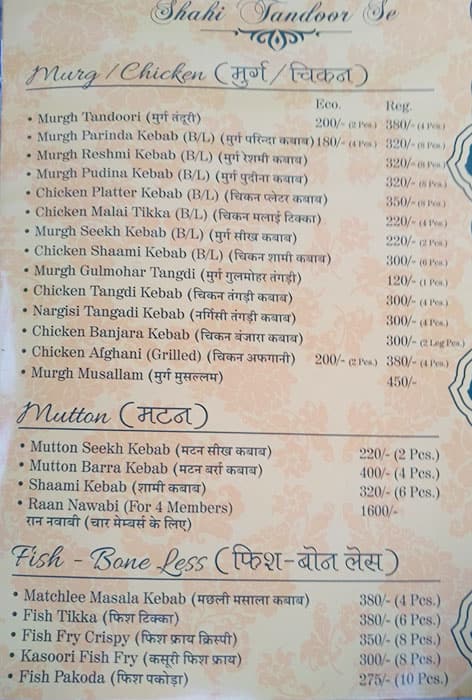 Shahi Tandoor Se
Murg / Chicken (मुर्ग / चिकन)
Eco. Reg.
• Murgh Tandoori (मुर्ग तंदूरी) 200/- (2 Pcs.) 380/- (4 Pcs.)
• Murgh Parinda Kebab (B/L) (मुर्ग परिन्दा कबाब) 180/- (4 Pcs.) 320/- (8 Pcs.)
• Murgh Reshmi Kebab (B/L) (मुर्ग रेशमी कबाब) 320/- (8 Pcs.)
• Murgh Pudina Kebab (B/L) (मुर्ग पुदीना कबाब) 320/- (8 Pcs.)
• Chicken Platter Kebab (B/L) (चिकन प्लेटर कबाब) 350/- (8 Pcs.)
• Chicken Malai Tikka (B/L) (चिकन मलाई टिक्का) 220/- (4 Pcs.)
• Murgh Seekh Kebab (B/L) (मुर्ग सीख कबाब) 220/- (2 Pcs.)
• Chicken Shaami Kebab (B/L) (चिकन शामी कबाब) 300/- (6 Pcs.)
• Murgh Gulmohar Tangdi (मुर्ग गुलमोहर तंगड़ी) 120/- (1 Pcs.)
• Chicken Tangdi Kebab (चिकन तंगड़ी कबाब) 300/- (4 Pcs.)
• Nargisi Tangadi Kebab (नर्गिसी तंगड़ी कबाब) 300/- (4 Pcs.)
• Chicken Banjara Kebab (चिकन बंजारा कबाब) 300/- (2 Leg Pcs.)
• Chicken Afghani (Grilled) (चिकन अफगानी) 200/- (2 Pcs.) 380/- (4 Pcs.)
• Murgh Musallam (मुर्ग मुसल्लम) 450/-
Mutton (मटन)
• Mutton Seekh Kebab (मटन सीख कबाब) 220/- (2 Pcs.)
• Mutton Barra Kebab (मटन बर्रा कबाब) 400/- (4 Pcs.)
• Shaami Kebab (शामी कबाब) 320/- (6 Pcs.)
• Raan Nawabi (For 4 Members) 1600/-
रान नवाबी (चार मेम्बर्स के लिए)
Fish - Bone Less (फिश-बोन लेस)
• Matchlee Masala Kebab (मछली मसाला कबाब) 380/- (4 Pcs.)
• Fish Tikka (फिश टिक्का) 380/- (6 Pcs.)
• Fish Fry Crispy (फिश फ्राय क्रिस्पी) 350/- (8 Pcs.)
• Kasoori Fish Fry (कसूरी फिश फ्राय) 300/- (8 Pcs.)
• Fish Pakoda (फिश पकोड़ा) 275/- (10 Pcs.)